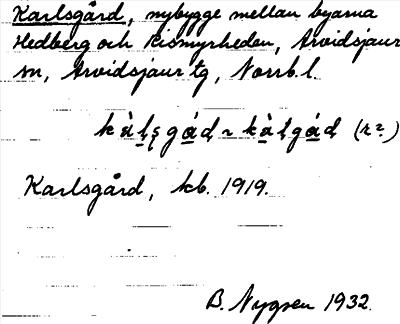 Karlsgård, nybygge mellan byarna
Hedberg och Rismyrheden, Arvidsjaur
sn, Arvidsjaur tg, Norrb. l.
kàḷṣgáḍ ~ kàḷgáḍ (r?)
Karlsgård, kb. 1919.
B. Nygren 1932.